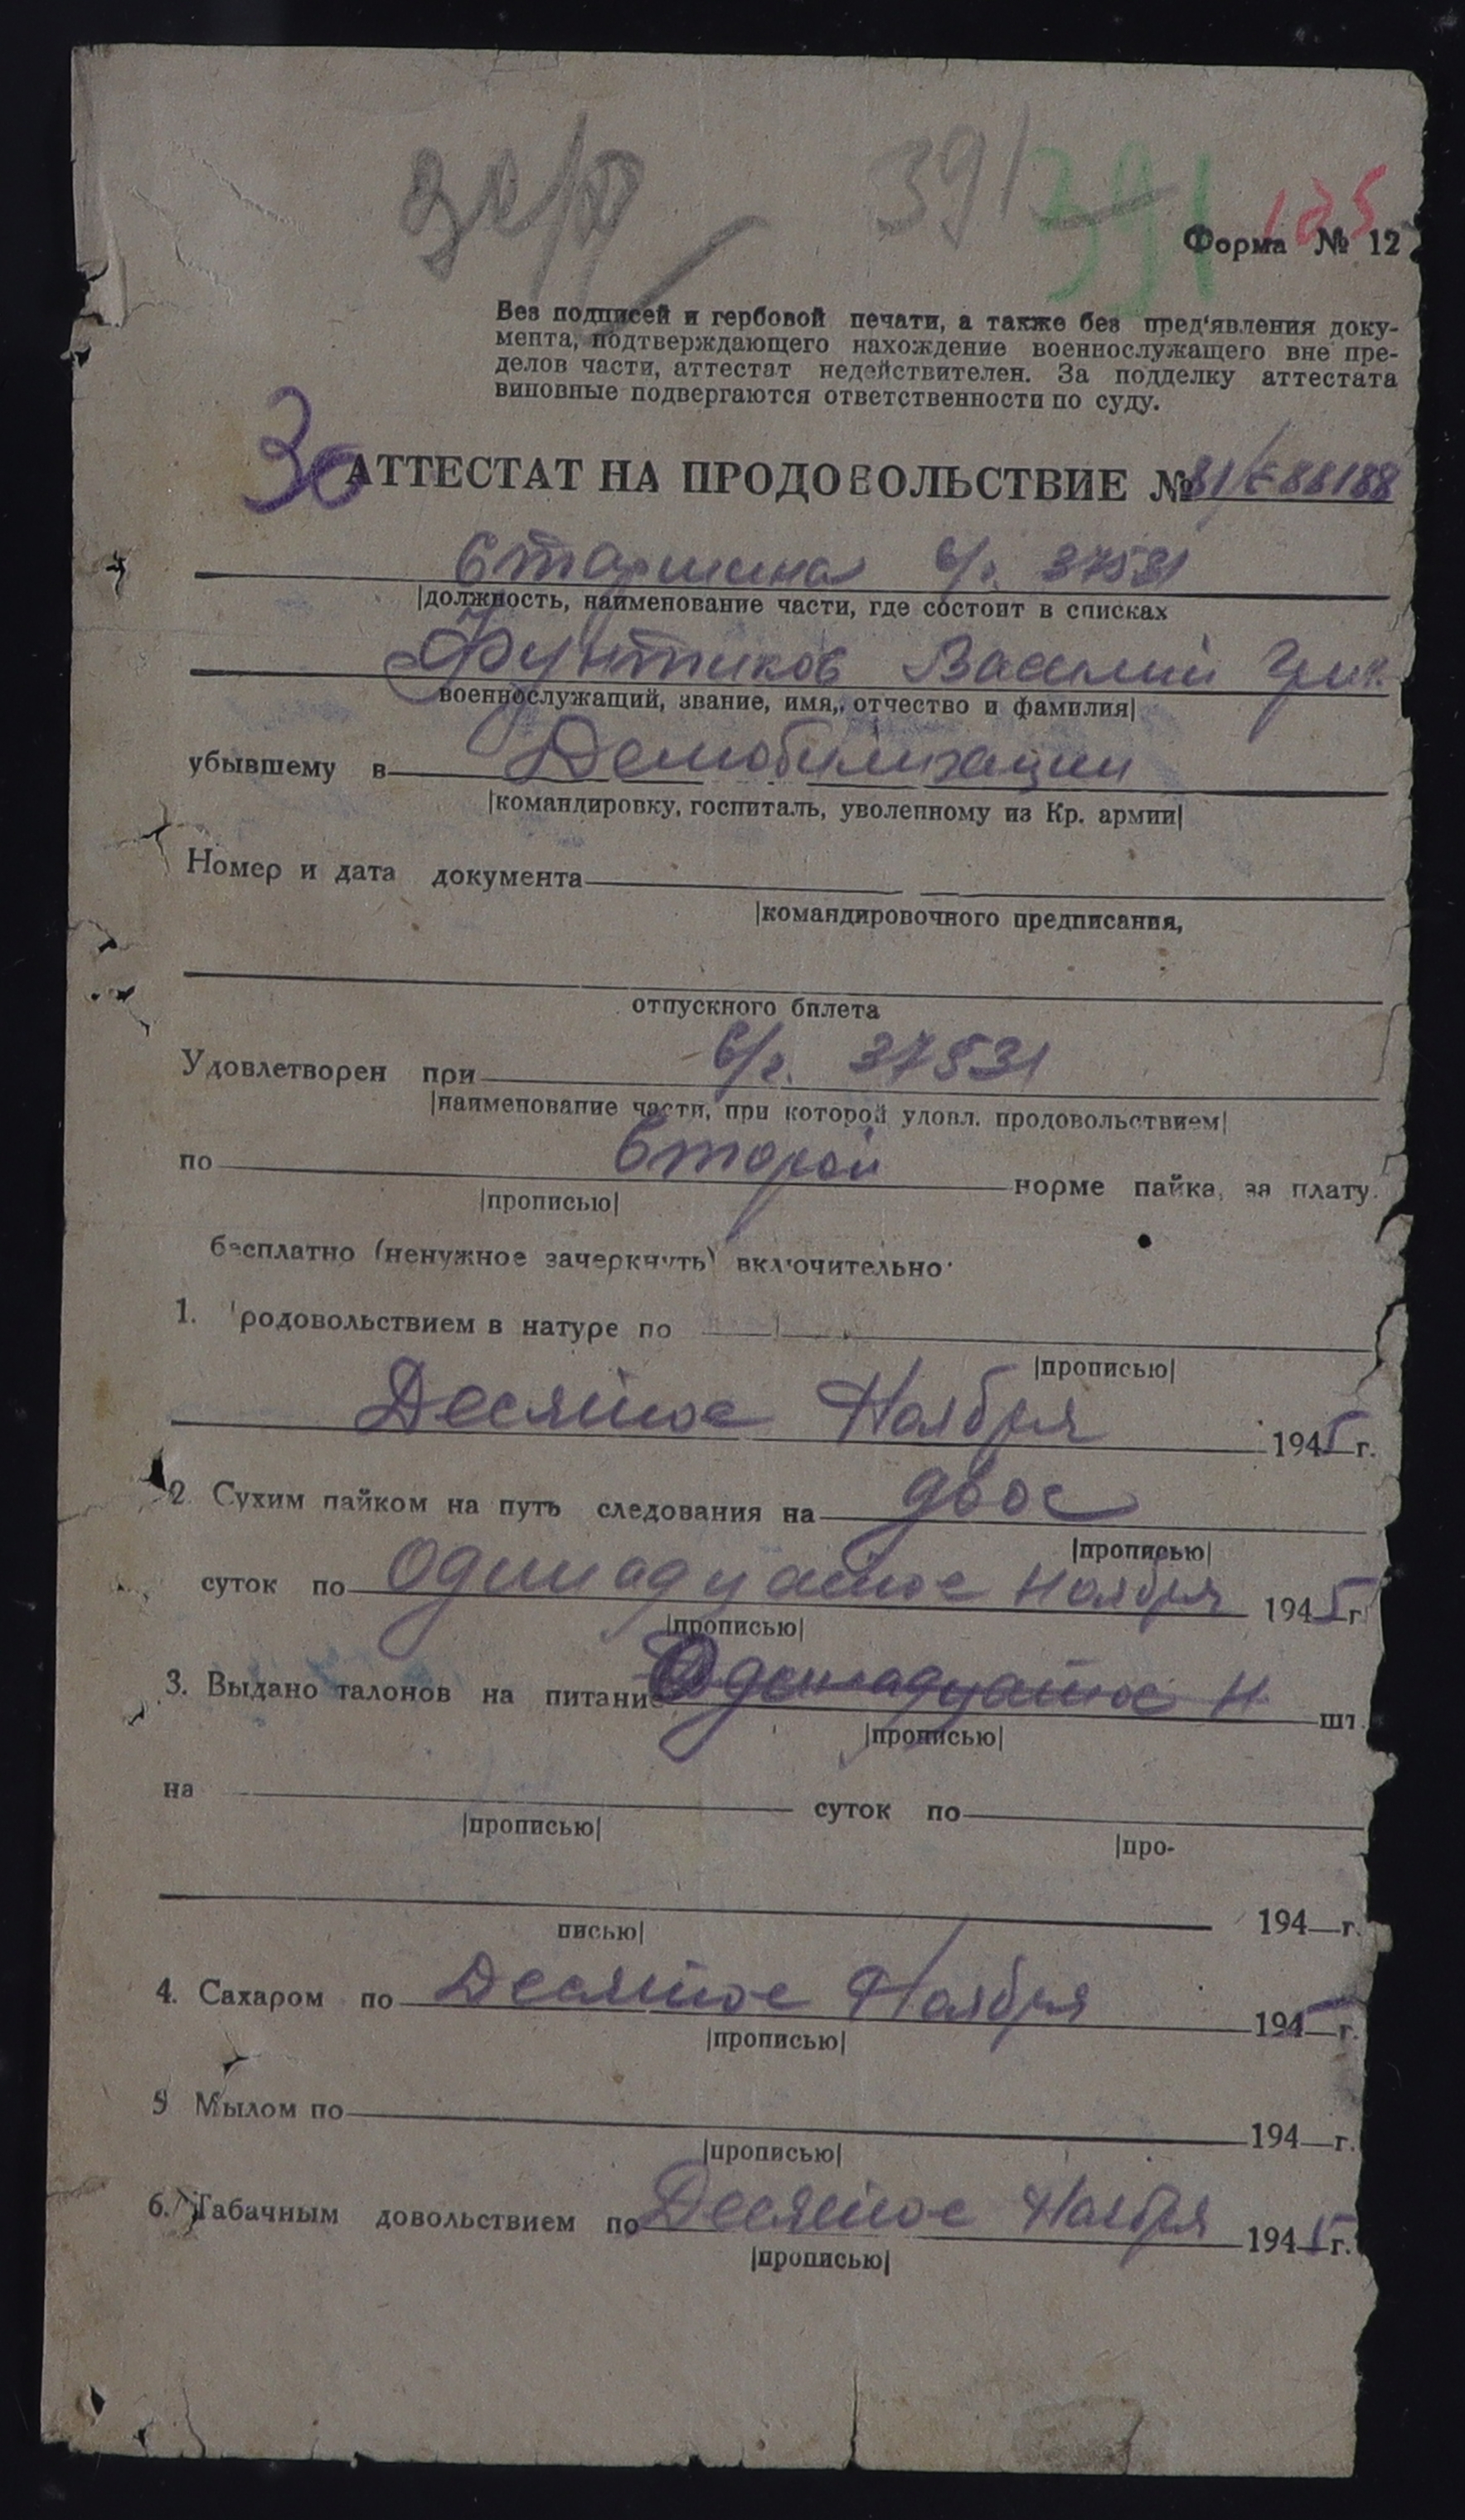 391 391 125
Форма № 12
Без подписей и гербовой печати, а также без пред'явления доку-
мента, подтверждающего нахождение военнослужащего вне пре-
делов части, аттестат недействителен. За подделку аттестата
виновные подвергаются ответственности по суду.
30
АТТЕСТАТ НА ПРОДОВОЛЬСТВИЕ №
Старшина в/ч. 37531
|должность, наименование части, где состоит в списках
Фунтиков Василий Гри.
военнослужащий, звание, имя, отчество и фамилия|
убывшему в Демобилизации
|командировку, госпиталь, уволенному из Кр. армии|
Номер и дата документа
|командировочного предписания,
отпускного билета
Удовлетворен при в/ч. 37531
|наименование части, при которой удовл. продовольствием|
по Второй норме пайка, за плату.
|прописью|
бесплатно (ненужное зачеркнуть) включительно·
1. родовольствием в натуре по
|прописью|
Десятое Ноября 1945 г.
2 Сухим пайком на путь следования на двое
|прописью|
суток по Одинадцатое Ноября 1945 г
|прописью|
3. Выдано талонов на питание Одинадцатое Н шт.
|прописью|
на суток по
|прописью| |про-
194 г.
писью|
4. Сахаром по Десятое Ноября 1945 г.
|прописью|
5 Мылом по 194 г.
|прописью|
6. Табачным довольствием по Десятое Ноября 1945 г.
|прописью|